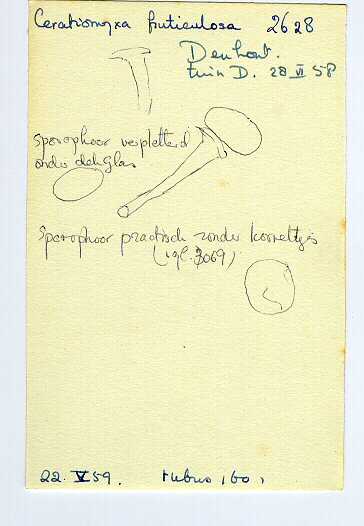 Ceratiomyxa fruticulosa 2628
Denhout.
tuin D. 28 VI 58
Sporophoor verpletterd
onder dekglas
Sporophoor practisch zonder korreltjes
(vgl. 3069)
22. V 59. rubus (60)